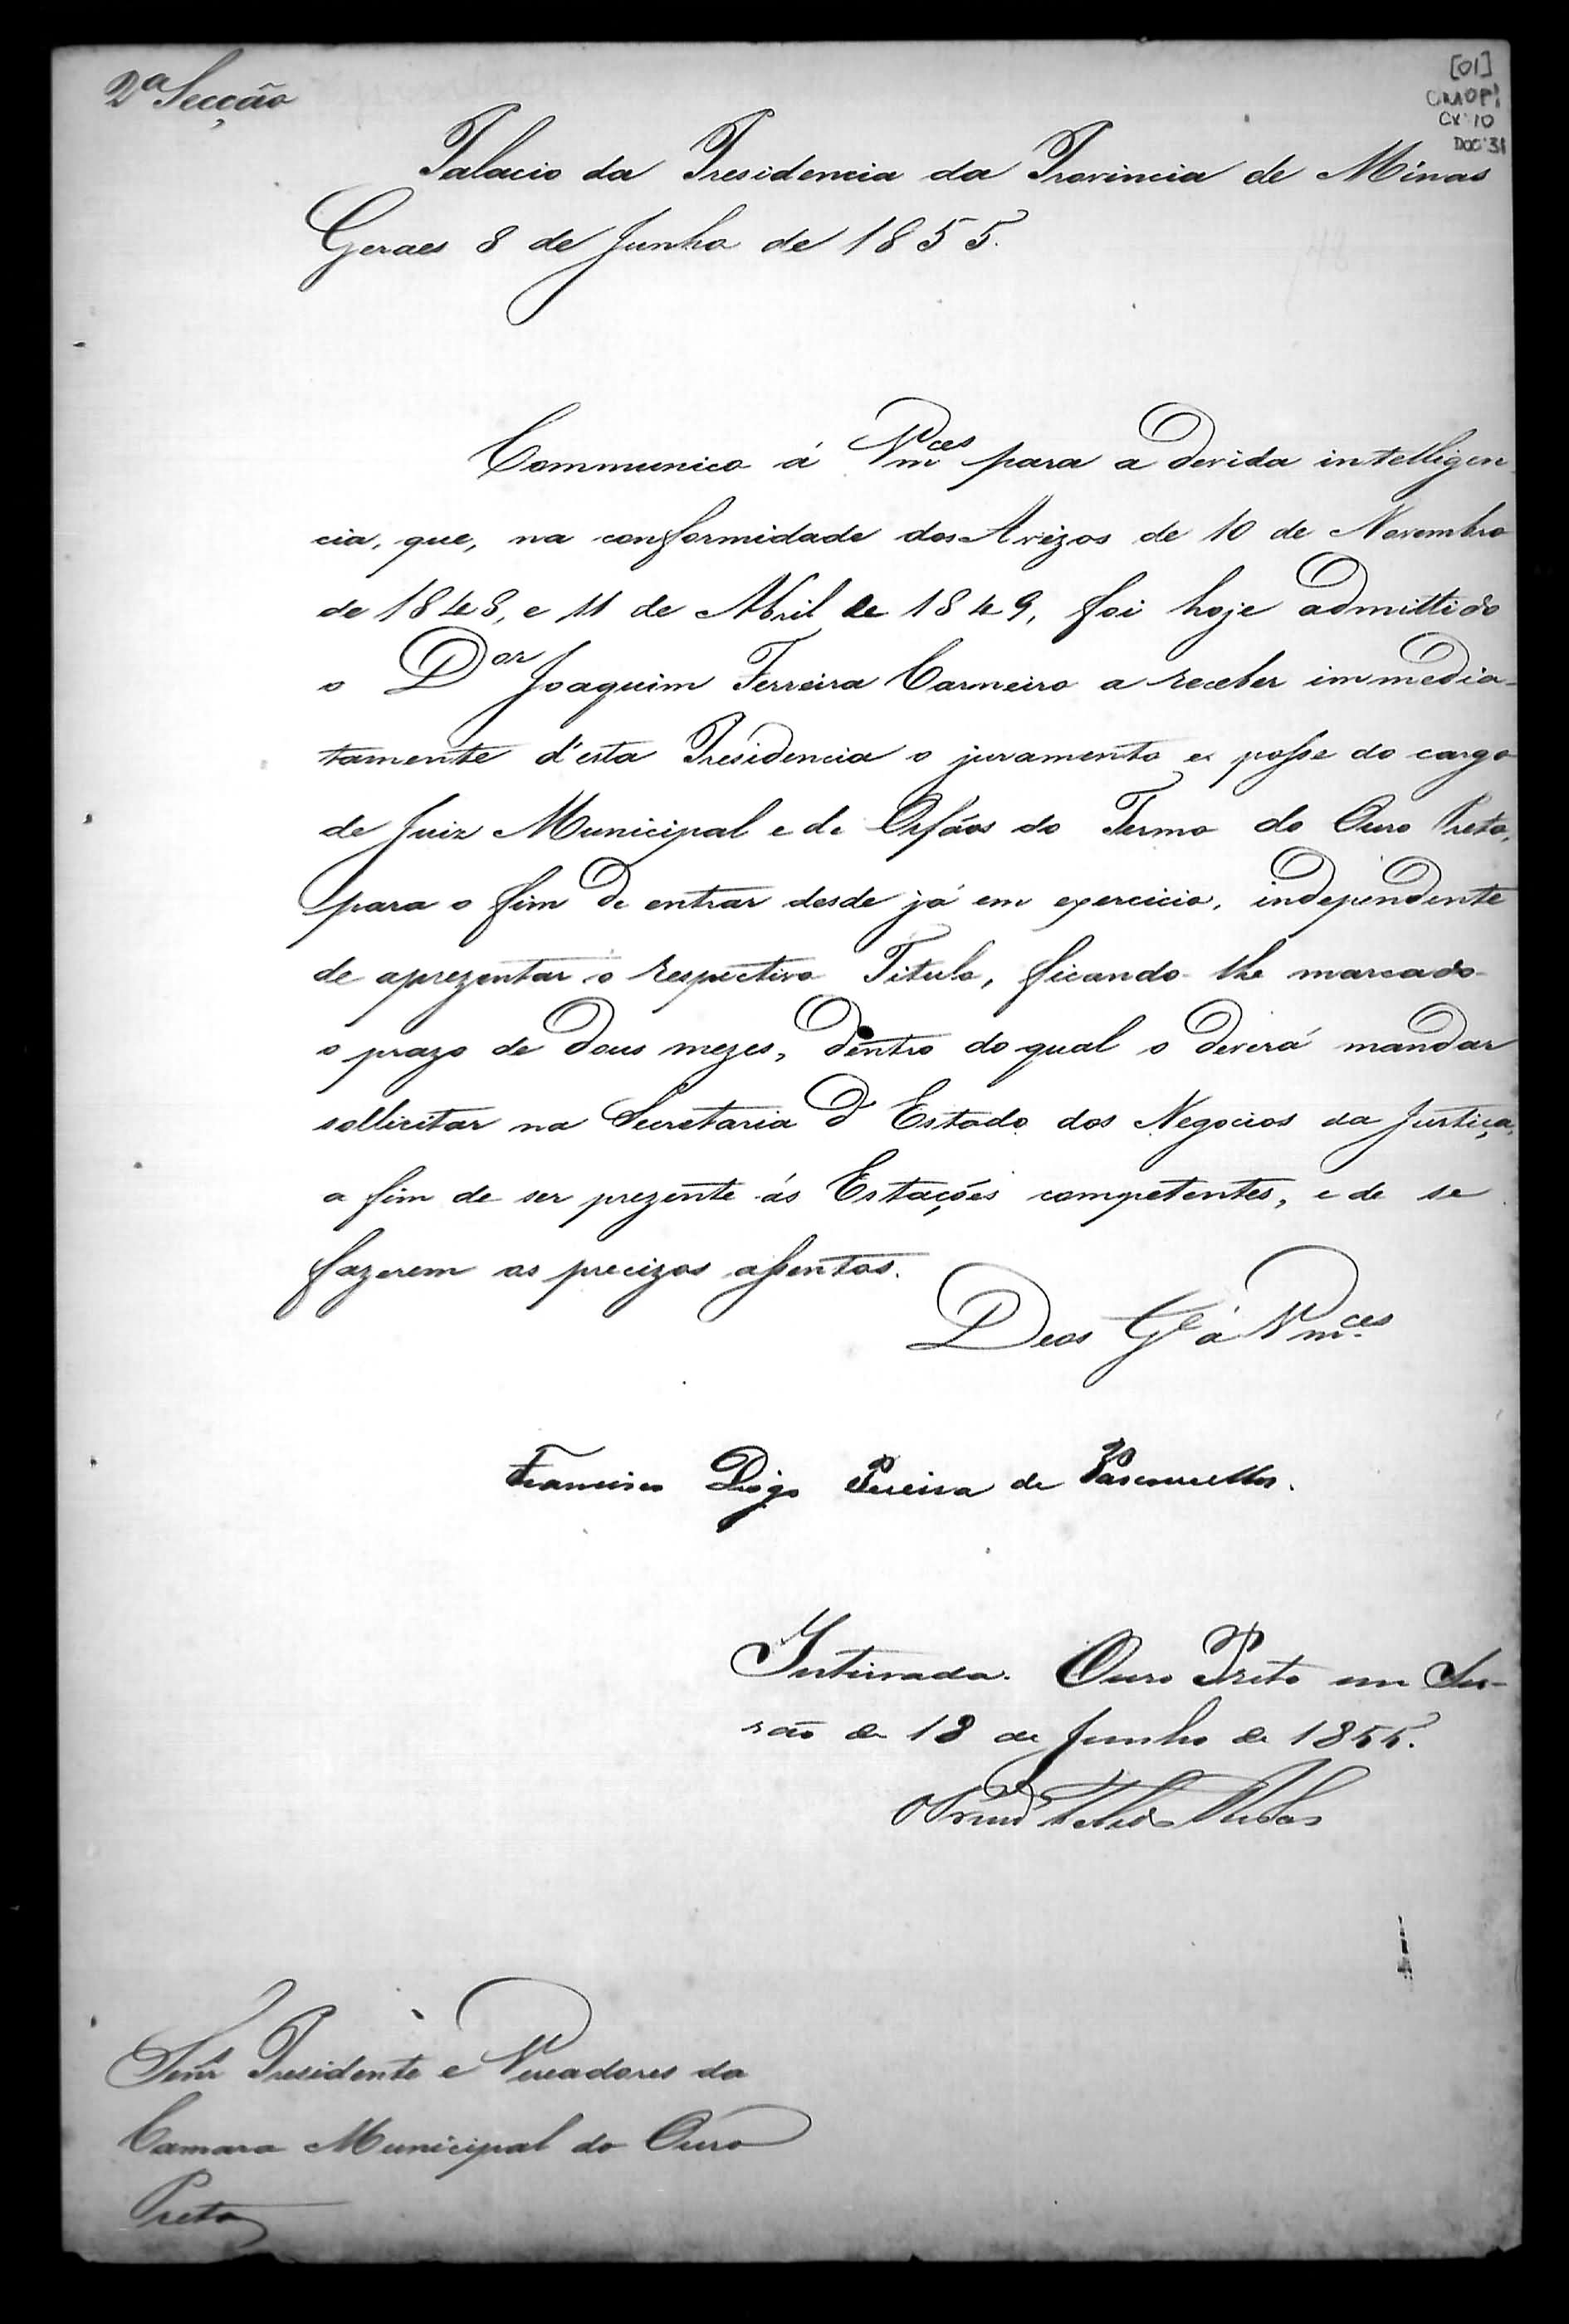 2ª Secção
[01]
CMOP
CX. 10
DOC. 31
Palacio da Presidencia da Provincia de Minas
Geraes 8 de Junho de 1855.
Communico á Vm.ces para a devida intelligen
cia, que, na conformidade dos Avizos de 10 de Novembro
de 1848, e 11 de Abril de 1849, foi hoje admittido
o Dor Joaquim Ferreira Carneiro a receber immedia-
tamente d'esta Presidencia o juramento e posse do cargo
de Juiz Municipal e de Orfãos do Termo do Ouro Preto,
para o fim de entrar desde já em exercicio, independente
de aprezentar o respectivo Titulo, ficando-lhe marcado
o prazo de dous mezes, dentro do qual o deverá mandar
sollicitar na Secretaria d'Estado dos Negocios da Justiça,
a fim de ser prezente ás Estações competentes, e de se
fazerem os precizos assentos.
Deos G.e a Vm.ces
Francisco Diogo Pereira de Vasconcellos.
Inteirada. Ouro Preto em Ses-
são de 18 de Junho de 1855.
Senr.s Presidente e Vereadores da
Camara Municipal do Ouro
Preto